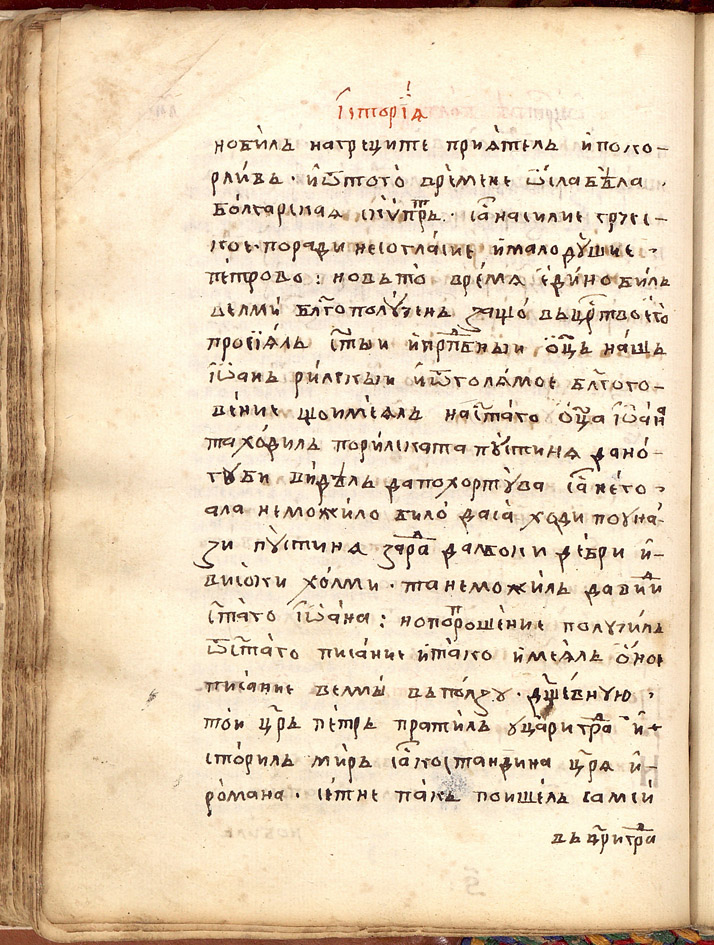 Їсторїѧ
но билъ на греците приѧтель и поко-
рливъ · и ѿ тото времене ѿслабѣла ·
болгарскаѧ скипрⷮъ · са насилие грчес-
кое · поради несогласие и малодꙋшие ·
петрово : но въ то времѧ едино билъ
велми благополꙋченъ защо въ црⷭтво его
просїѧлъ ст҃ыи и прпⷣбныи ѡц҃ъ нашъ
їѡанъ рилскыи и ѿ голѧмое благого-
вение що имеѧлъ на ст҃аго ѡц҃а їѡанⷩ
та ходилъ по рилската пꙋстинѧ да но-
гꙋ би видѣлъ да похортꙋва са него ·
ала не можило било да сѧ ходи по ѡна-
зи пꙋстинѧ зараⷣ далбоки дебри и-
високи холми · та не можилъ да видиⷣ
ст҃аго їѡана : но по прошение полꙋчилъ
ѿ ст҃аго писание и тако имеѧлъ ѻное
писание велмы въ ползꙋ · дш҃евную ·
тои цр҃ь петръ пратилъ ꙋ цариграⷣ и с-
сторилъ миръ са костандина цр҃ѧ и-
романа · сетне пакъ поишелъ самси
въ цр҃играⷣ